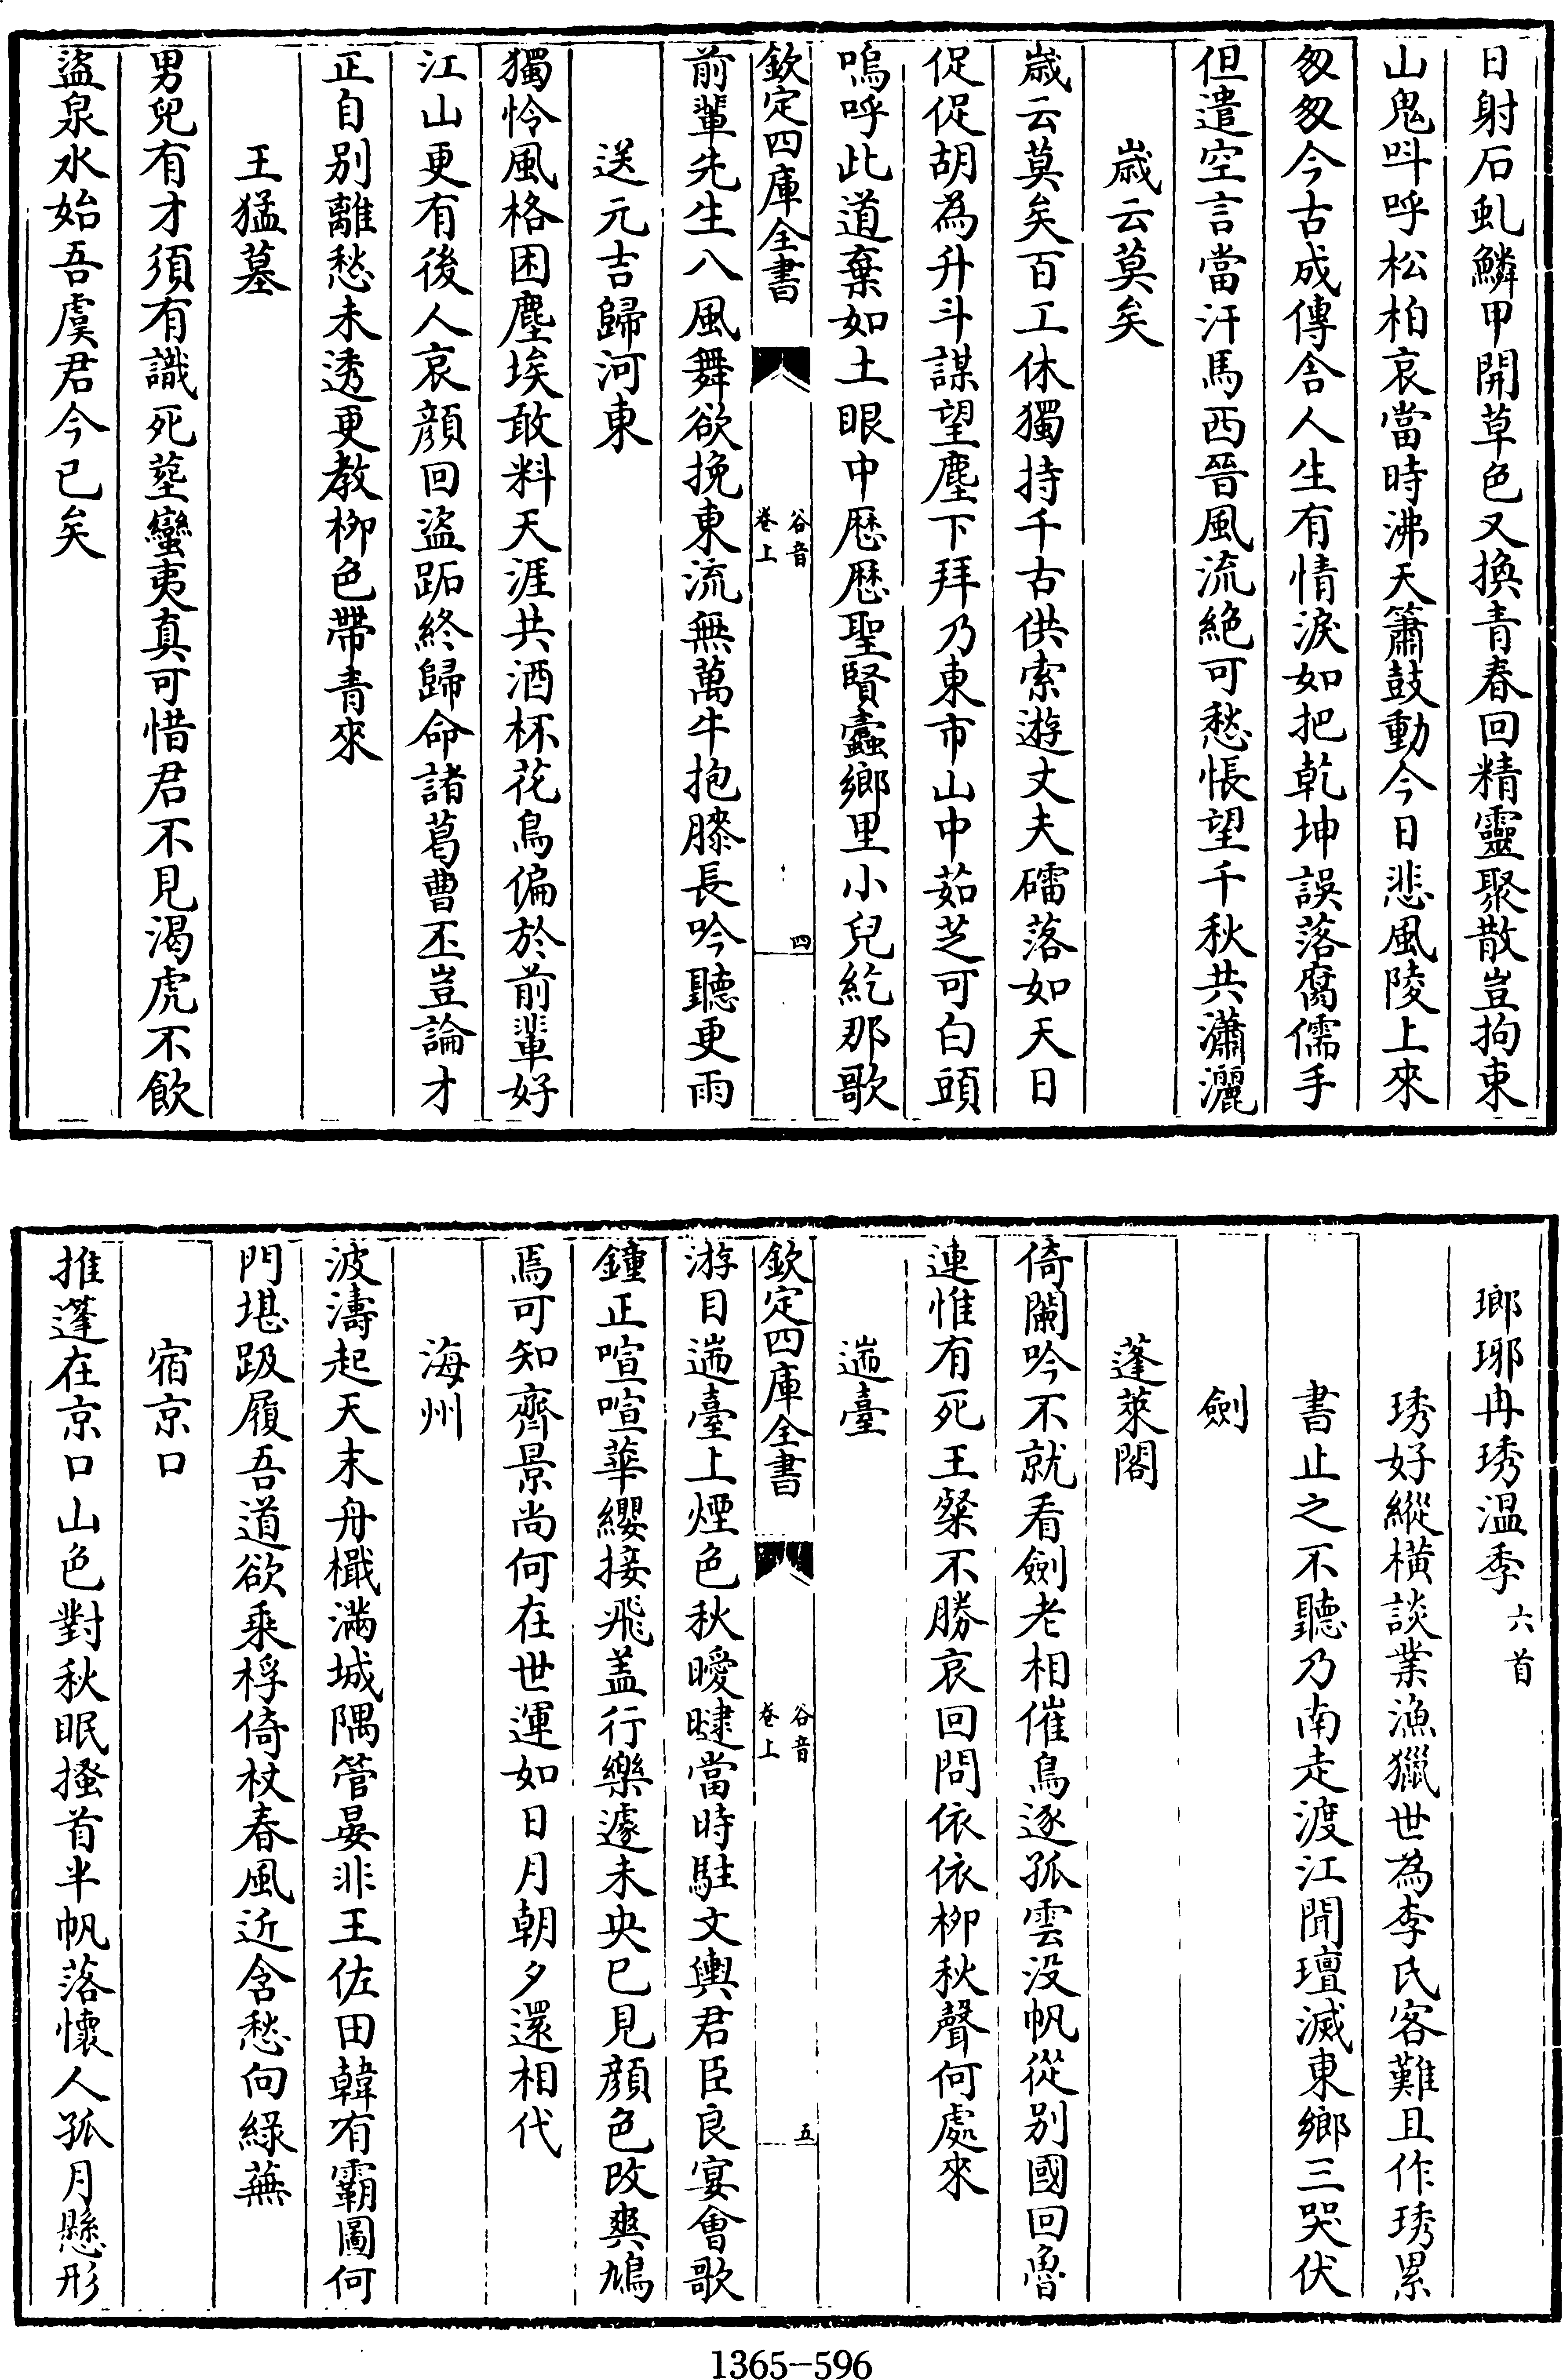 日射石虬鱗甲開草色又換青春回精靈聚散豈拘束
山鬼呌呼松柏哀當時沸天簫鼓動今日悲風陵上來
匆匆今古成傳舎人生有情淚如把乾坤誤落腐儒手
但遣空言當汗馬西晉風流絶可愁悵望千秋共瀟灑
歳云莫矣
歳云莫矣百工休獨持千古供索遊丈夫礌落如天日
促促胡為升斗謀望塵下拜乃東市山中茹芝可白頭
嗚呼此道棄如土眼中歴歴聖賢蠹鄉里小兒紇那歌
欽定四庫全書
谷音
卷上
四
前輩先生八風舞欲挽東流無萬牛抱膝長吟聽更雨
送元吉歸河東
獨怜風格困塵埃敢料天涯共酒杯花鳥偏於前輩好
江山更有後人哀顔回盜跖終歸命諸葛曹丕豈論才
正自别離愁未透更教柳色帶青來
王猛墓
男兒有才須有識死塟蠻夷真可惜君不見渴虎不飲
盜泉水始吾虞君今已矣
瑯琊冉琇温季六首
琇好縱橫談業漁獵世為李氏客難且作琇累
書止之不聽乃南走渡江聞璮滅東鄉三哭伏
劍
蓬萊閣
倚闌吟不就看劍老相催鳥逐孤雲没帆從别國回魯
連惟有死王粲不勝哀回問依依柳秋聲何處來
遄臺
欽定四庫全書
谷音
卷上
五
游目遄臺上煙色秋曖㬣當時駐文輿君臣良宴會歌
鐘正喧喧華纓接飛盖行樂遽未央已見顔色改爽鳩
焉可知齊景尚何在世運如日月朝夕還相代
海州
波濤起天末舟檝滿城隅管晏非王佐田韓有霸圖何
門堪趿履吾道欲乘桴倚杖春風近含愁向緑蕪
宿京口
推蓬在京口山色對秋眠搔首半帆落懷人孤月懸形
1365-596